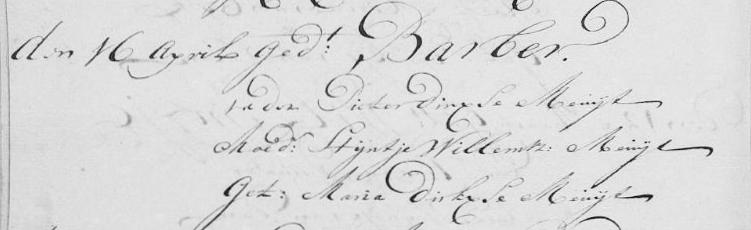 den 16 April ged.t Barber.
vader Pieter Dirxse Meuijt
Moed.r Stijntje Willemsz: Meuijt
Get: Maria Dirkxse Meuijt